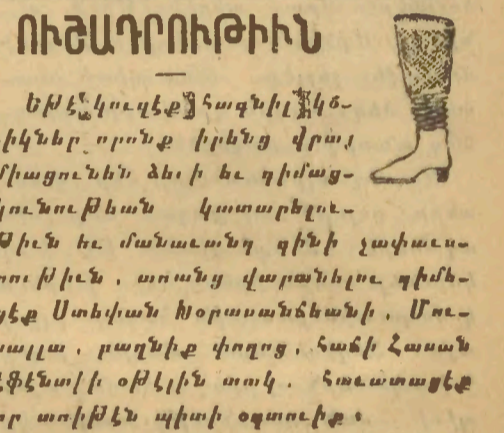 ՈՒՇԱԴՐՈՒԹԻՒՆ
Եթէ կուզէք հագնիլ կօ-
իկներ որոնք իրենց վրայ
միացունեն ձեւի եւ դիմաց-
կունութեան կատարելու-
թիւն եւ մանաւանդ գինի չափաւո-
րութիւն, առանց վարանելու դիմե-
ցէք Ստեփան Խօրասանճեանի, Մու-
սալլա, րաղնիք փողոց, Հաճի Հասան
էֆէնտիի օթէլին տակ. Հաւատացէք
որ առիթէն պիտի օգտուիք։